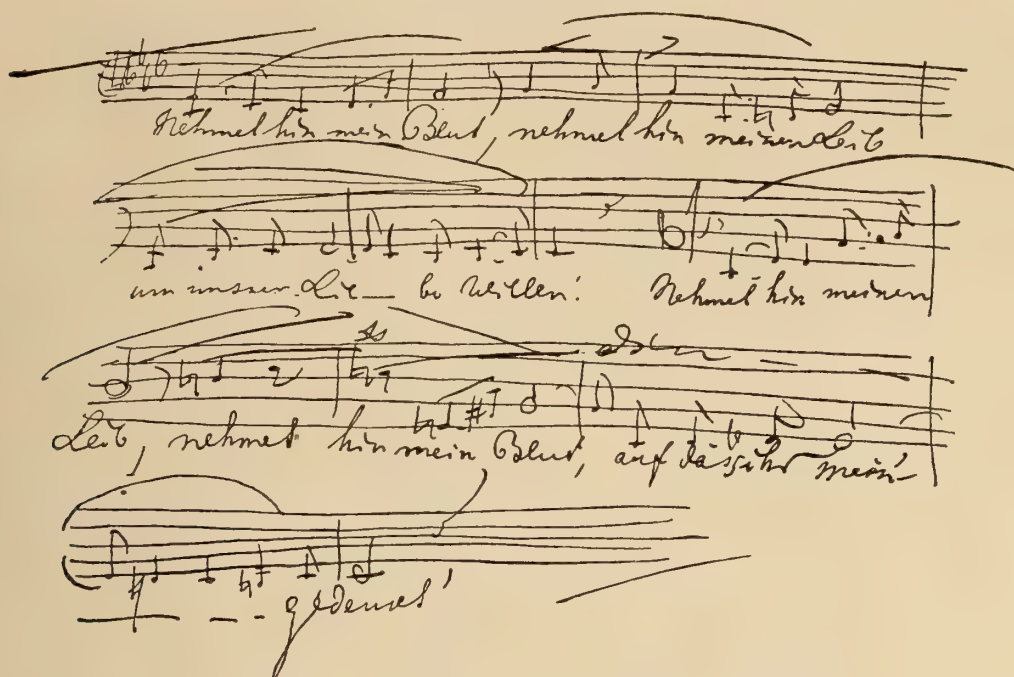 Nehmet hin mein Blut, nehmet hin meinen Leib
um unsrer Lie— be Willen!   Nehmet hin meinen
Leib, nehmet hin mein Blut, auf dass ihr mein'
— — - - gedenket!